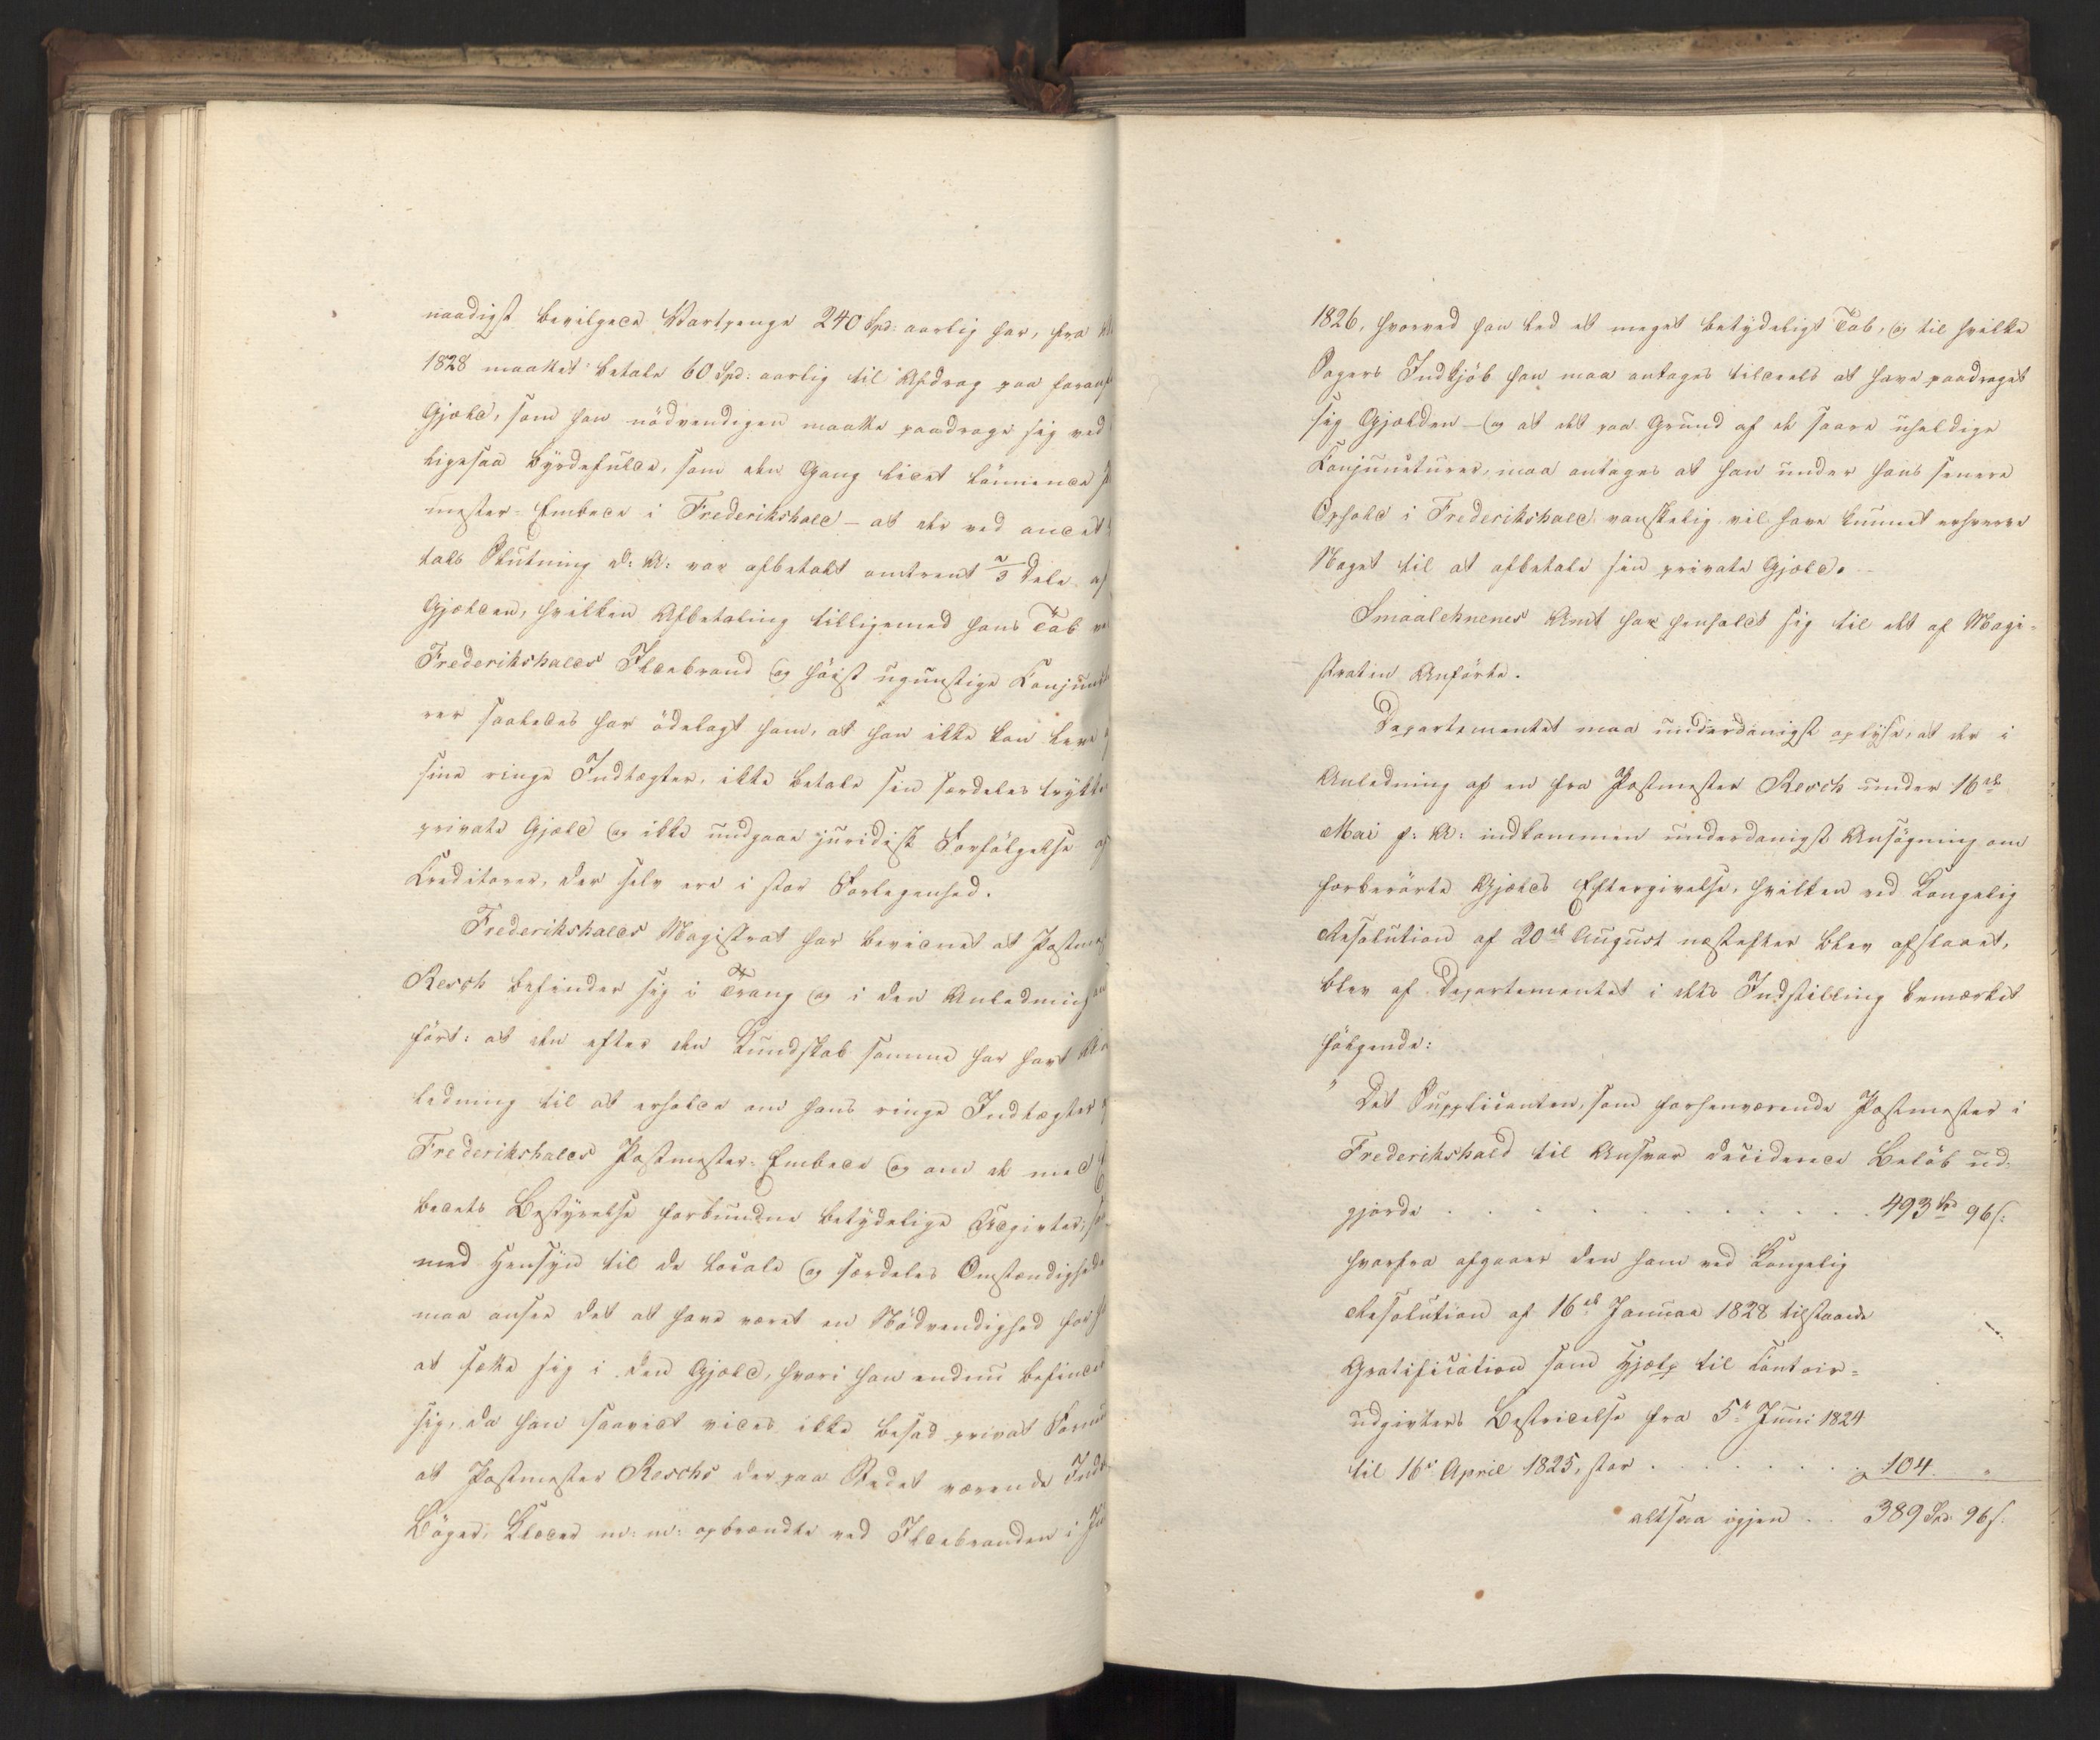 naadigst bevilgede Vartpenge 240 Spd: aarlig har, fra
1828 maattet betale 60 Spd: aarlig til Afdrag paa
Gjæld, som han nödvendigen maatte paadrage sig ved
ligesaa byrdefulde, som den Gang lidet lönnende
mester-Embede i Frederikshald – at der ved andet
tals Slutning d: A: var afbetalt omtrent 2/3 Dele af
Gjælden, hvilken Afbetaling tilligemed hans Tab
Frederikshalds Ildebrand og höist ugunstige
rer saaledes har ödelagt ham, at han ikke kan leve
sine ringe Indtægter, ikke betale sin særdeles
private Gjæld og ikke undgaae juridisk Forfölgelse af
Creditorer, der selv ere i stor Forlegenhed.
Frederikshalds Magistrat har bevidnet at
Resch befinder sig i Trang og i den Anledning
fört: at den efter den Kundskab samme har havt
ledning til at erholde om hans ringe Indtægter
Frederikshalds Postmester-Embede og om de med
bedets Bestyrelse forbundne betydelige Udgivter,
med Hensyn til de locale og særdeles
maa ansee det at have været en Nödvendighed for
at sætte sig i den Gjæld, hvori han endnu
sig, da han saavidt vides ikke besad privat
at Postmester Reschs der paa Stedet værende
Böger, Klæder m: m: opbrændte ved Ildebranden i
1826, hvorved han led et meget betydeligt Tab, og til hvilke
Sagers Indkjöb han maa antages tildeels at have paadraget
sig Gjælden – og at det paa Grund af de saare uheldige
Conjuncturer, maa antages at han under hans senere
Ophold i Frederikshald vanskelig vil have kunnet erhverve
Noget til at afbetale sin private Gjæld.
Smaalehnenes Amt har henholdt sig til det af Magi-
straten Anförte.
Departementet maa underdanigst oplyse, at der i
Anledning af en fra Postmester Resch under 16de
Mai f: A: indkommen underdanigst Ansögning om
forberörte Gjælds Eftergivelse, hvilken ved Kongelig
Resolution af 20de August næstefter blev afslaaet,
blev af Departementet i dets Indstilling bemærket
fölgende:
" Det Supplicanten, som forhenværende Postmester i
Frederikshald til Ansvar deciderede Belöb ud-
gjorde . . . . . . . . . . . . 493 Spd 96 s:
hvorfra afgaaer den ham ved Kongelig
Resolution af 16de Januar 1828 tilstaaede
Gratification som Hjælp til Contoir-
udgivters Bestridelse fra 5te Juni 1824
til 16de April 1825, stor . . . . . . . . 104 "
altsaa igjen . . 389 Spd. 96 s.